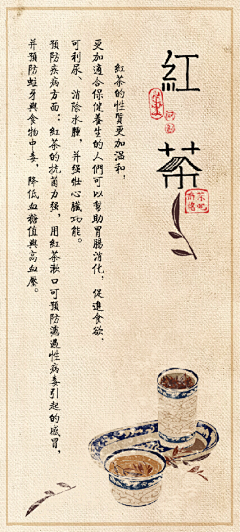 紅茶
紅茶的性質更加溫和，
更加適合保健養生的人們可以幫助胃腸消化，促進食欲，
可利尿、消除水腫，并強壯心臟功能。
預防疾病方面：紅茶的抗菌力強，用紅茶漱口可預防濾過性病毒引起的感冒，
并預防蛀牙與食物中毒，降低血糖值與高血壓。